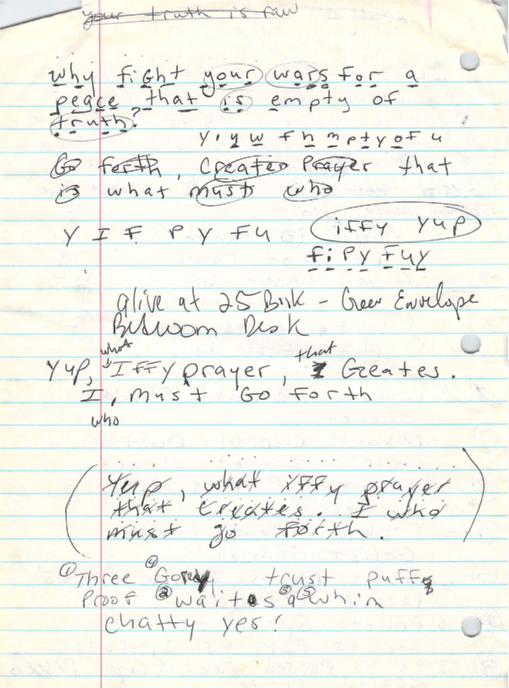 your truth is raw
why fight your wars for a
peace that is empty of
truth?
y, y w f h m p t y o f u
Go forth, Create Prayer that
is what must who
Y I F P Y F U iffy yup
fipy fuy
alive at 25 Book - Green Envelope
Bedroom Desk
what that
Yup, Iffy prayer, I Creates.
I, must Go Forth
who
Yup, what iffy prayer
that Creates. I who
must go forth.
Three Gory trust puffs
Proof waits a whim
chatty yes!